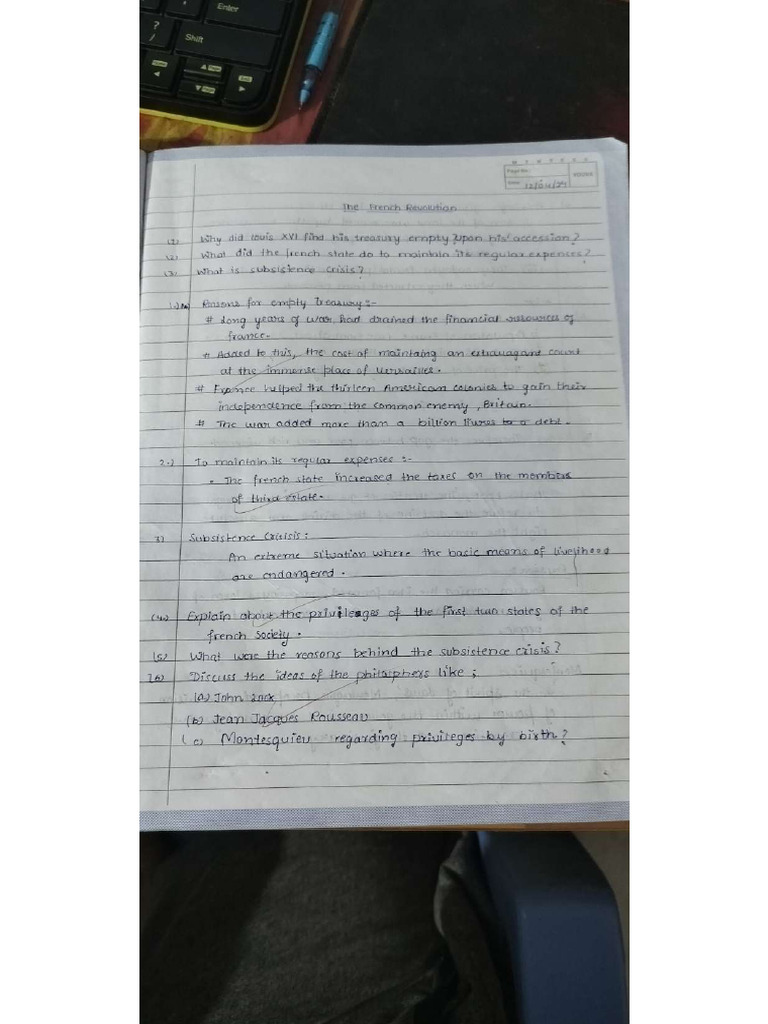 Enter
?
/
Shift
Page No.
Date: 12/04/24
YOUVA
The French Revolution
(1) Why did Louis XVI find his treasury empty upon his accession?
(2) What did the french state do to maintain its regular expenses?
(3) What is subsistence crisis?
Reasons for empty treasury:-
# Long years of war had drained the financial resources of
france.
# Added to this, the cost of maintaing an extravagant court
at the immense place of versailles.
# France helped the thirteen American colonies to gain their
independence from the common enemy, Britain.
# The war added more than a billion livres to a debt.
2.) To maintain its regular expenses :-
• The french state increased the taxes on the members
of third estate.
3) Subsistence Crisis:
An extreme situation where the basic means of livelihood
are endangered.
(4) Explain about the privileages of the first two states of the
french society.
(5) What were the reasons behind the subsistence crisis?
(6) Discuss the ideas of the philosphers like;
(a) John Lock
(b) Jean Jacques Rousseau
(c) Montesquieu regarding privileges by birth?